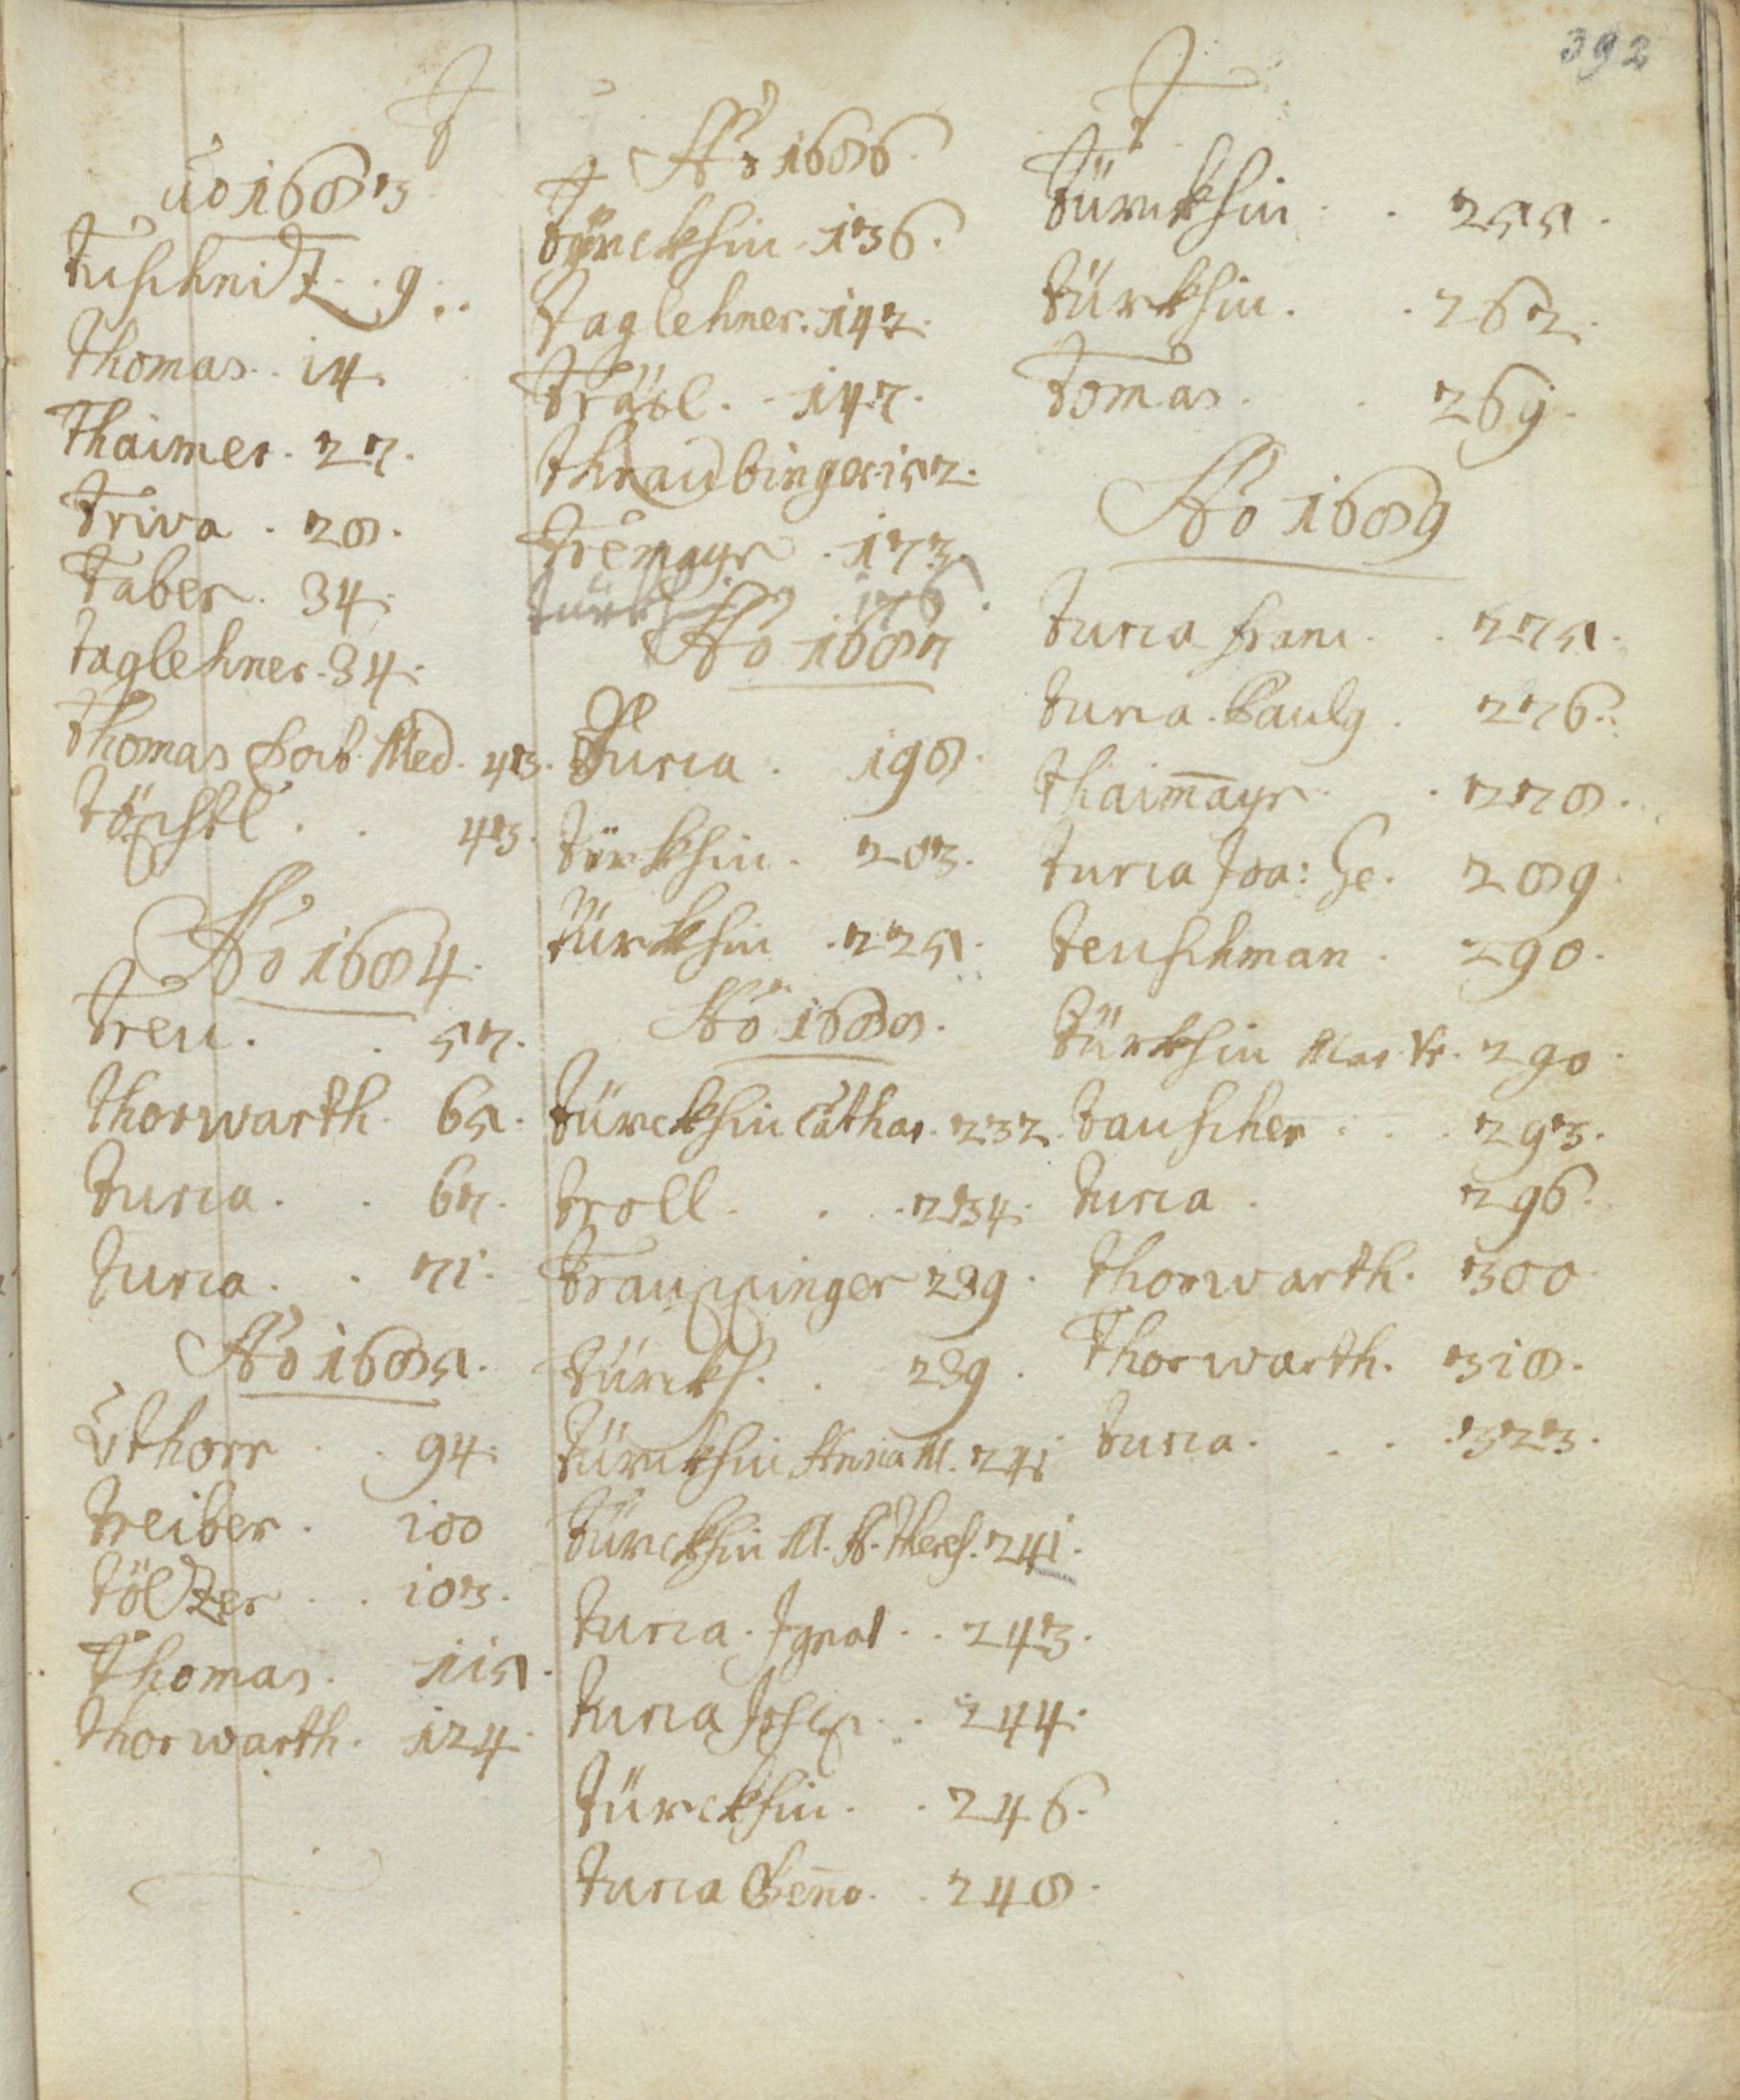 392
T
ao 1683
Tuschnidz . . 9 . .
Thomas . . 14 .
Thaimer . 27 .
Triva . 28 .
Taber . 34 .
Taglehner . 34 .
Thomas Med . 43 .
43 .
Ao 1684 .
Treu . . 57 .
Thorwarth . 65 .
Turia . . 67 .
Turia . . 71 .
Ao 1685 .
Vthorr . . 94 .
Treiber . 100
Töltzer . . 103 .
Thomas . 115 .
Thorwarth . 124 .
Ao 1686 .
Türckhin . 136 .
Taglehner . 142 .
Träxl . . 147 .
Thraubinger . 152 .
Tremayr . 173 .
Türkhin 176 .
Ao 1687
Turia . 198 .
Türkhin . 203 .
Türkhin . 225 .
Ao 1688 .
Türckhin Cathar . 232 .
Troll . . . 234 .
Trauppinger 239 .
Türckh . . 239 .
Türckhin Anna M . 241
Türckhin M . A . Theres . 241 .
Turia . Ignat . . 243 .
Turia Joseph . . 244 .
Türckhin . . 246 .
Turia Benno . . 248 .
T
Türckhin . . 255 .
Türkhin . . 262 .
Tomas . . 269 .
Ao 1689
Turia Franc . . 275 .
Turia . Paulg . 276 .
Thaimayr . . 278 .
Turia Joa : Ge . 289
Teuschman . 290 .
Türkhin Mar . Vr . 290 .
Tauscher . . . 293 .
Turia . 296 .
Thorwarth . 300 .
Thorwarth . 318 .
Turia . . . 323 .